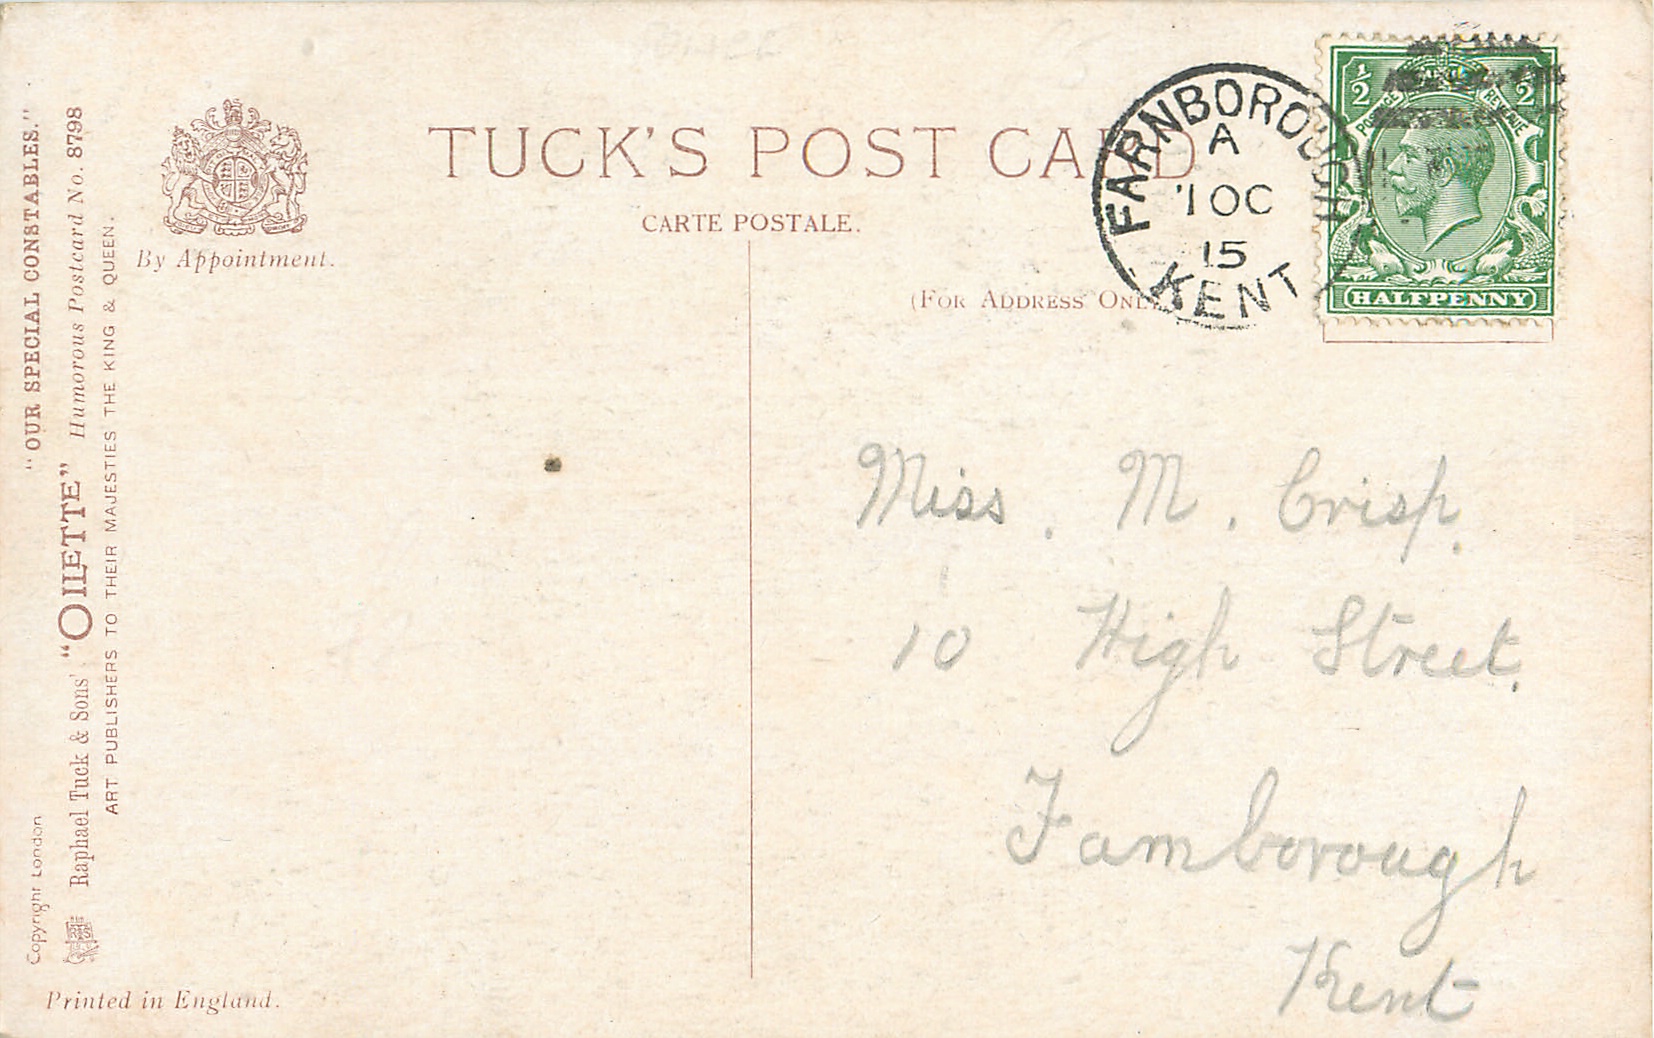 "OUR SPECIAL CONSTABLES."
Raphael Tuck & Sons' "OILETTE" Humorous Postcard No. 8798
ART PUBLISHERS TO THEIR MAJESTIES THE KING & QUEEN.
Copyright London
Printed in England.
By Appointment.
TUCK'S POST CARD
CARTE POSTALE.
(FOR ADDRESS ONLY
FARNBOROUGH
A
'1 OC
15
KENT
½ ½
POSTAGE REVENUE
HALFPENNY
Miss. M. Crisp.
10 High Street.
Farnborough
Kent